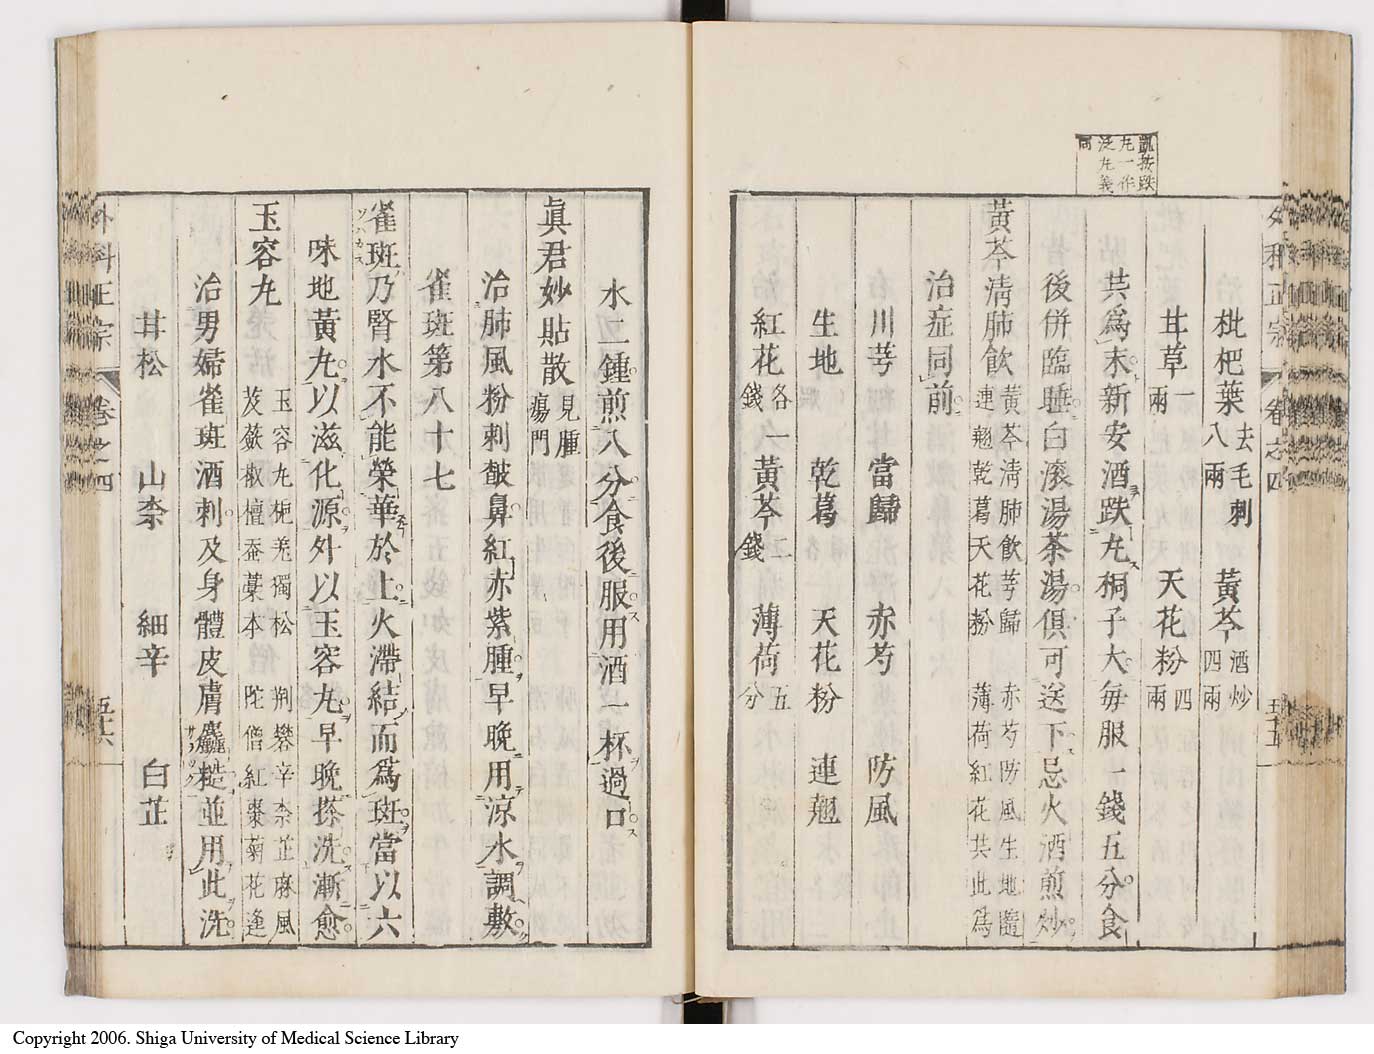 凱按跌
丸一作
泛丸義
同
外科正宗 卷之四 五十五
枇杷葉八兩去毛刺 黃芩四兩酒炒
甘草一兩 天花粉四兩
共爲末新安酒跌丸桐子大每服一錢五分食
後併臨睡白滾湯茶湯俱可送下忌火酒煎炒
黃芩淸肺飮 黃芩淸肺飮芎歸 赤芍防風生地隨
連翹乾葛天花粉 薄荷紅花共此爲
治症同前
右川芎 當歸 赤芍 防風
生地 乾葛 天花粉 連翹
紅花各一錢 黃芩二錢 薄荷五分
水二鍾煎八分食後服用酒一杯過口
眞君妙貼散 見腫瘍門
治肺風粉刺皶鼻紅赤紫腫早晚用涼水調敷
雀斑第八十七
雀斑乃腎水不能榮華於上火滯結而爲斑當以六
味地黃丸以滋化源外以玉容丸早晚搽洗漸愈
玉容丸 玉容丸梔羌獨松 荆攀辛柰芷麻風
茇蔹椒檀蚕藁本 陀僧紅棗菊花逢
治男婦雀斑酒刺及身體皮膚麤糙並用此洗
甘松 山柰 細辛 白芷
外科正宗 卷之四 五十六
Copyright 2006. Shiga University of Medical Science Library